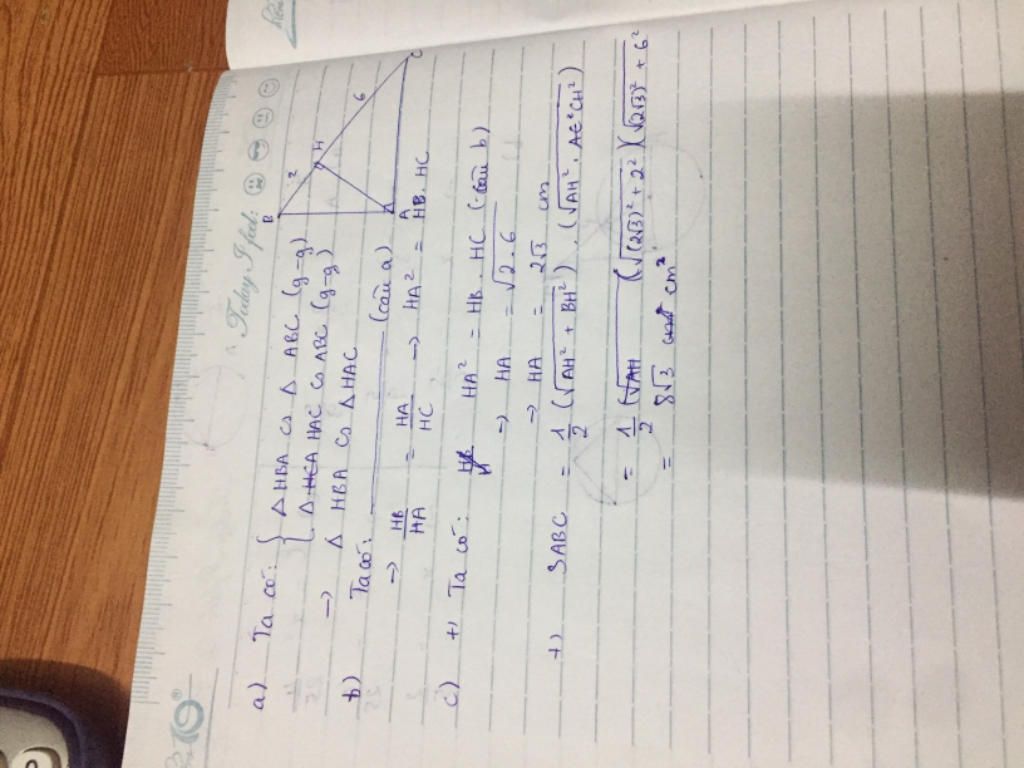 Today I feel:
B
2
H
6
A
C
a) Ta có: { Δ HBA ∽ Δ ABC (g-g)
Δ HAC ∽ ABC (g-g)
→ Δ HBA ∽ Δ HAC
b) Ta có: (câu a)
→ HB/HA = HA/HC → HA² = HB. HC
c) +, Ta có: HA² = HB. HC (câu b)
→ HA = √2.6
→ HA = 2√3 cm
+, SABC = 1/2 (√AH² + BH²). (√AH². CH²)
= 1/2 (√(2√3)² + 2²)(√(2√3)² + 6²
= 8√3 cm²